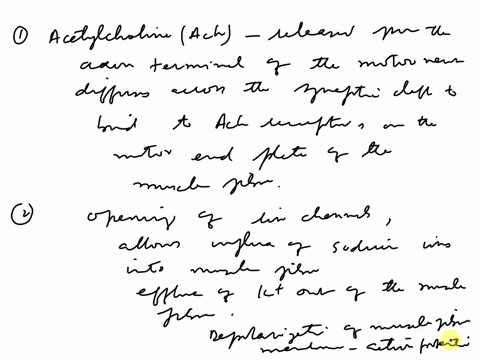 ① Acetylcholine (Ach) – released from the
axon terminal of the motor neuron
diffuses across the synaptic cleft to
bind to Ach receptors on the
motor end plate of the
muscle fibre.
② opening of ion channels,
allows influx of sodium ions
into muscle fibre
efflux of K+ out of the muscle
fibre.
Depolarization of muscle fibre
membrane – action potential